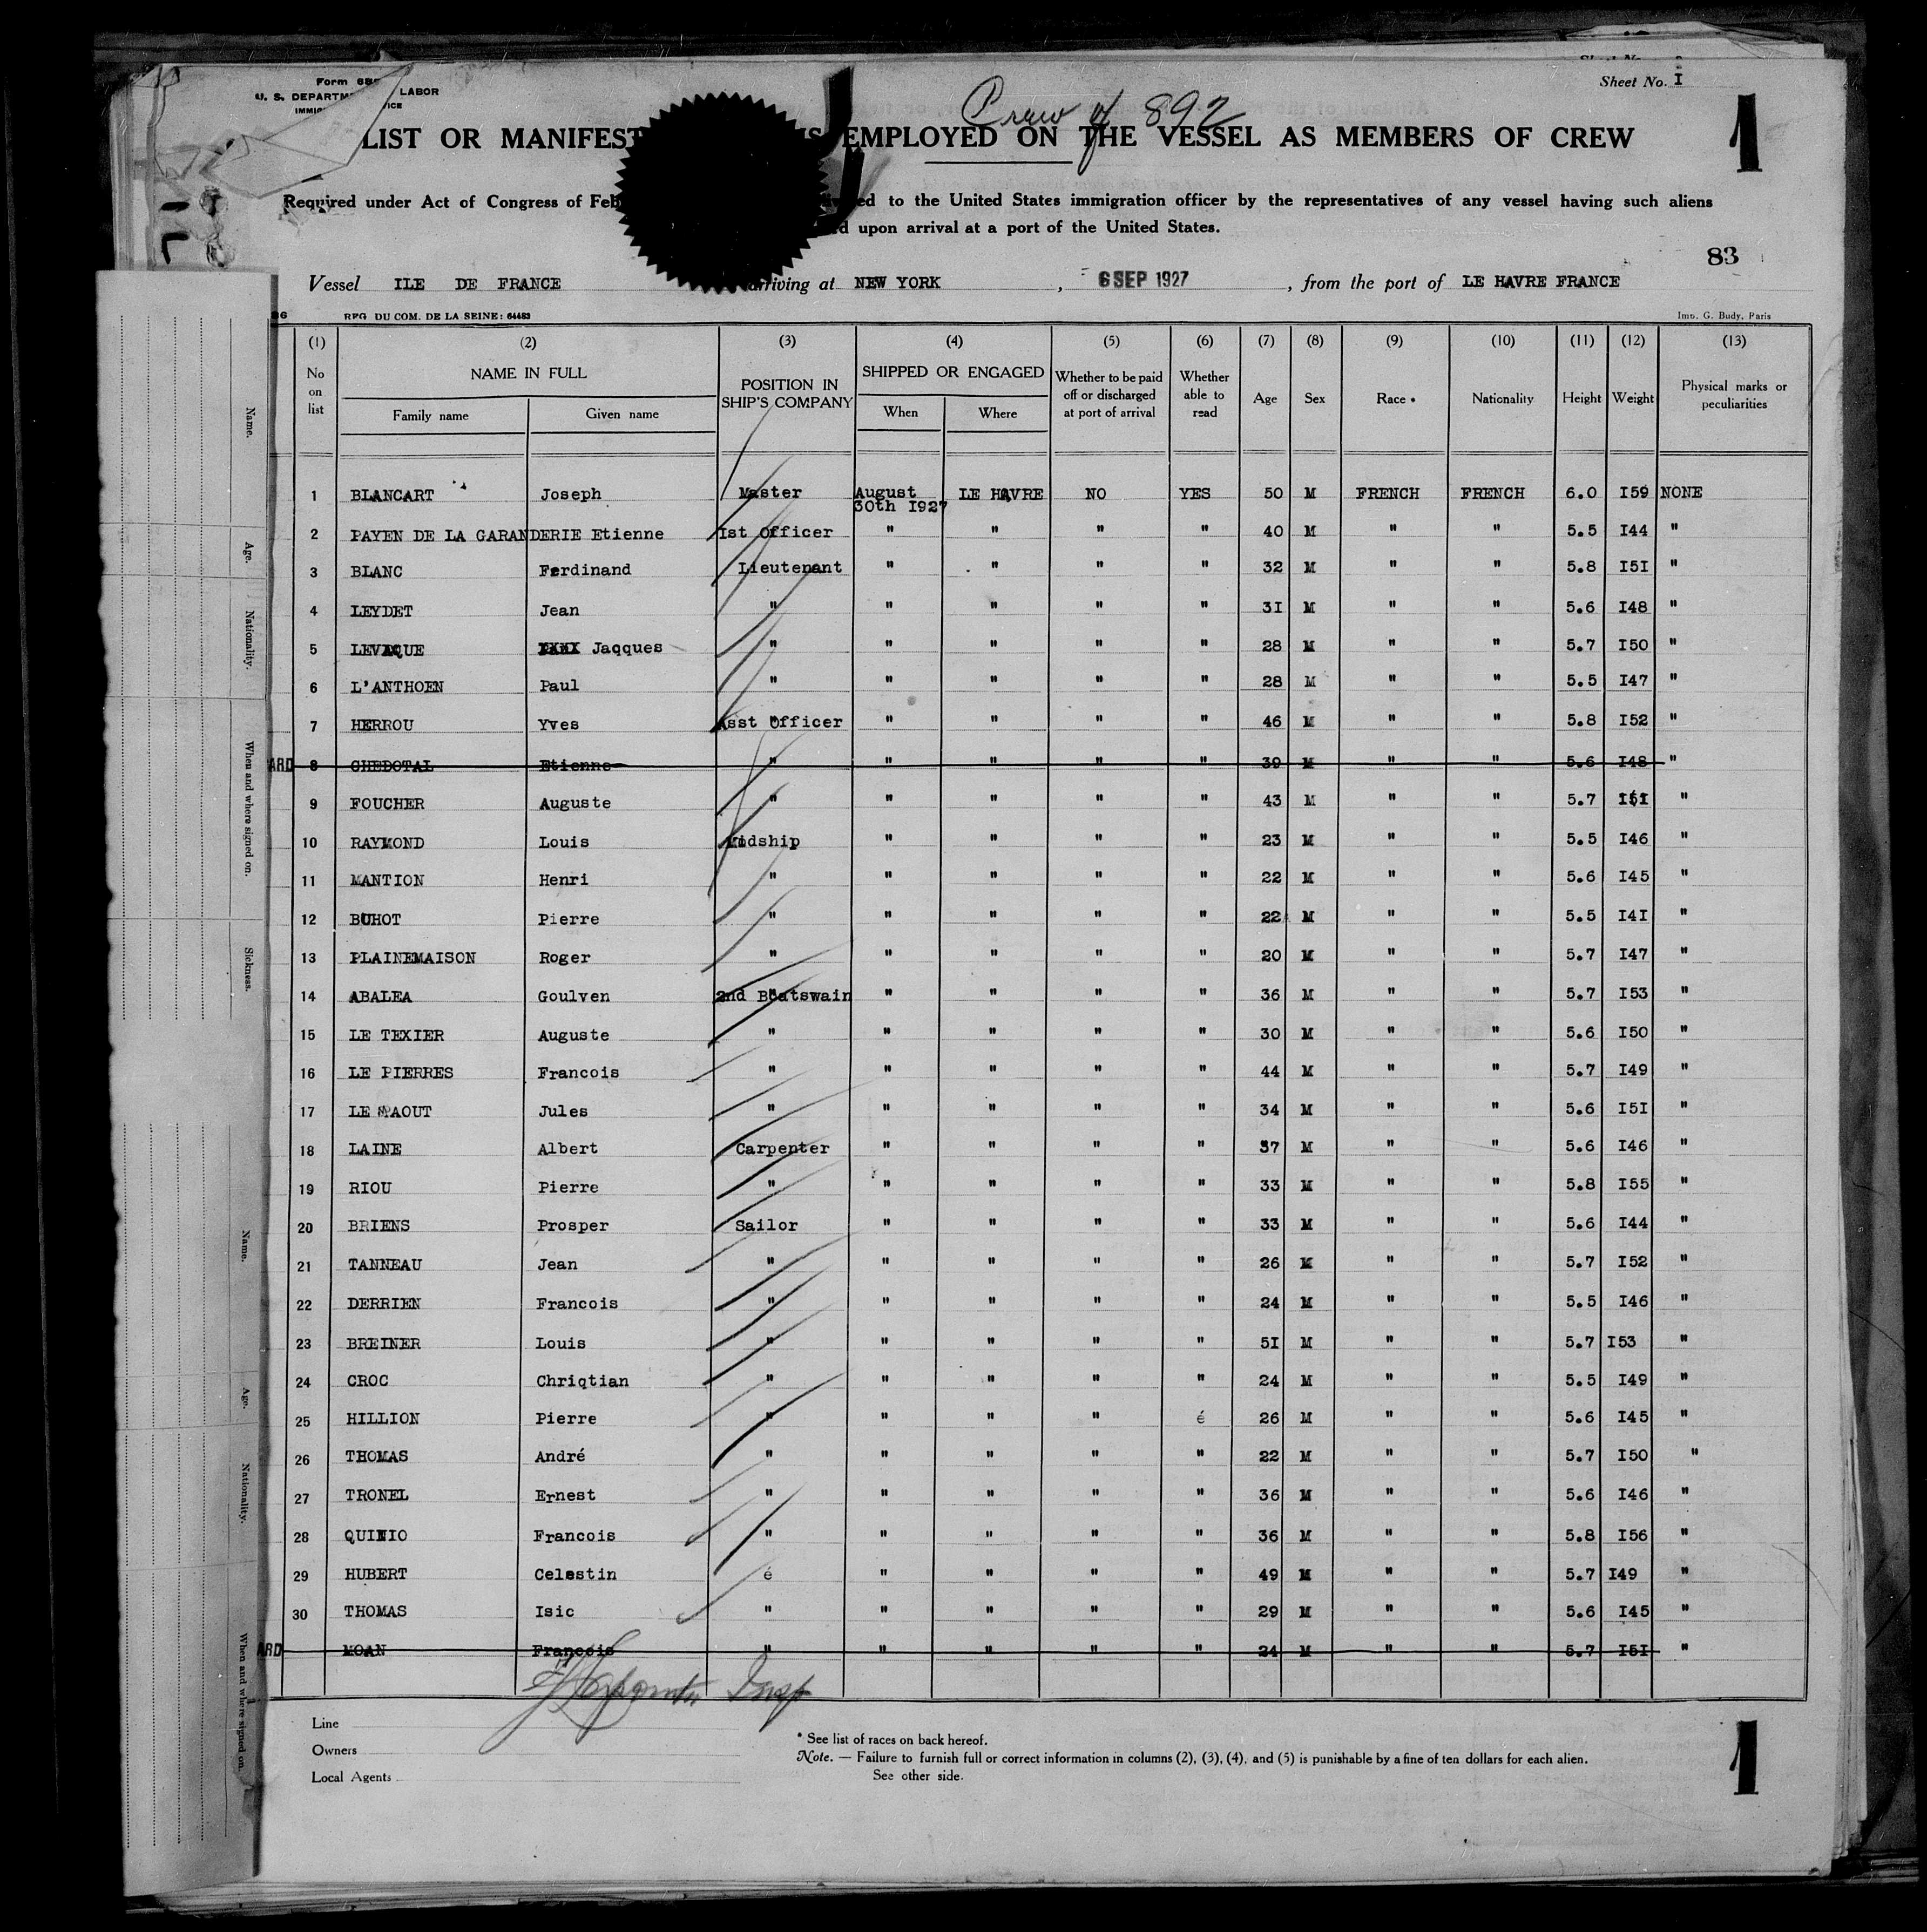 Sheet No. I
Form 68
U. S. DEPARTM LABOR
IMMIG ICE
Crew of 892
LIST OR MANIFEST S EMPLOYED ON THE VESSEL AS MEMBERS OF CREW
1
Required under Act of Congress of Feb ed to the United States immigration officer by the representatives of any vessel having such aliens
d upon arrival at a port of the United States.
83
Vessel ILE DE FRANCE arriving at NEW YORK , 6 SEP 1927 , from the port of LE HAVRE FRANCE
REG. DU COM. DE LA SEINE: 64483 Imp. G. Budy, Paris
(1) (2) (3) (4) (5) (6) (7) (8) (9) (10) (11) (12) (13)
No on list NAME IN FULL Family name Given name POSITION IN SHIP'S COMPANY SHIPPED OR ENGAGED When Where Whether to be paid off or discharged at port of arrival Whether able to read Age Sex Race * Nationality Height Weight Physical marks or peculiarities
1 BLANCART Joseph Master August 30th I927 LE HAVRE NO YES 50 M FRENCH FRENCH 6.0 I59 NONE
2 PAYEN DE LA GARANDERIE Etienne Ist Officer " " " " 40 M " " 5.5 I44 "
3 BLANC Ferdinand Lieutenant " " " " 32 M " " 5.8 I5I "
4 LEYDET Jean " " " " " 3I M " " 5.6 I48 "
5 LEVAQUE Jaqques " " " " " 28 M " " 5.7 I50 "
6 L'ANTHOEN Paul " " " " " 28 M " " 5.5 I47 "
7 HERROU Yves Asst Officer " " " " 46 M " " 5.8 I52 "
ARD 8 CHEDOTAL Etienne " " " " " 39 M " " 5.6 I48 "
9 FOUCHER Auguste " " " " " 43 M " " 5.7 I5I "
10 RAYMOND Louis Midship " " " " 23 M " " 5.5 I46 "
11 MANTION Henri " " " " " 22 M " " 5.6 I45 "
12 BUHOT Pierre " " " " " 22 M " " 5.5 I4I "
13 PLAINEMAISON Roger " " " " " 20 M " " 5.7 I47 "
14 ABALEA Goulven 2nd Boatswain " " " " 36 M " " 5.7 I53 "
15 LE TEXIER Auguste " " " " " 30 M " " 5.6 I50 "
16 LE PIERRES Francois " " " " " 44 M " " 5.7 I49 "
17 LE AOUT Jules " " " " " 34 M " " 5.6 I5I "
18 LAINE Albert Carpenter " " " " 37 M " " 5.6 I46 "
19 RIOU Pierre " " " " " 33 M " " 5.8 I55 "
20 BRIENS Prosper Sailor " " " " 33 M " " 5.6 I44 "
21 TANNEAU Jean " " " " " 26 M " " 5.7 I52 "
22 DERRIEN Francois " " " " " 24 M " " 5.5 I46 "
23 BREINER Louis " " " " " 5I M " " 5.7 I53 "
24 CROC Chriqtian " " " " " 24 M " " 5.5 I49 "
25 HILLION Pierre " " " " é 26 M " " 5.6 I45 "
26 THOMAS André " " " " " 22 M " " 5.7 I50 "
27 TRONEL Ernest " " " " " 36 M " " 5.6 I46 "
28 QUINIO Francois " " " " " 36 M " " 5.8 I56 "
29 HUBERT Celestin é " " " " 49 M " " 5.7 I49 "
30 THOMAS Isic " " " " " 29 M " " 5.6 I45 "
ARD MOAN Francois " " " " " 24 M " " 5.7 I5I "
Insp
Line
Owners
Local Agents
* See list of races on back hereof.
Note. — Failure to furnish full or correct information in columns (2), (3), (4), and (5) is punishable by a fine of ten dollars for each alien.
See other side.
1
Name.
Age.
Nationality.
When and where signed on.
Sickness.
Name.
Age.
Nationality.
When and where signed on.